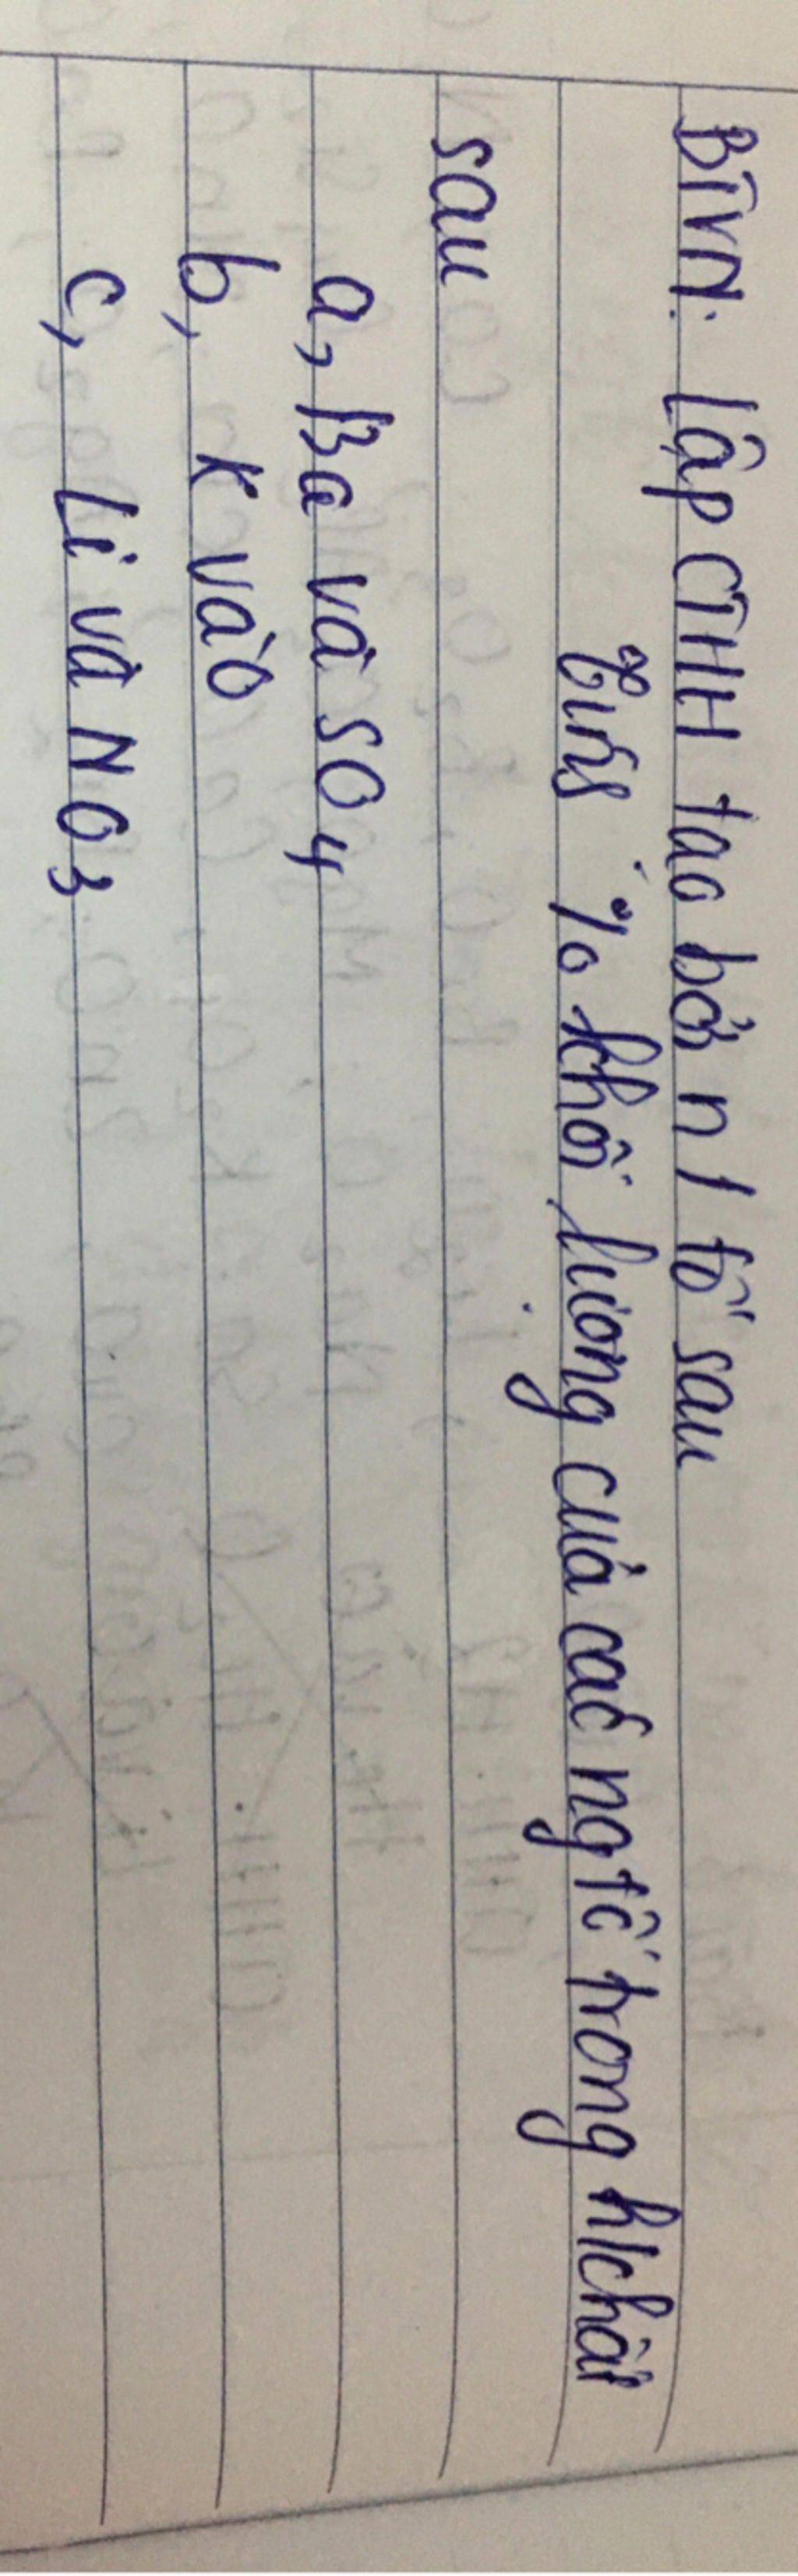 BTVN: lập CTHH tạo bởi n / tố sau
Tính % khối lượng của các ng tố trong h/chất
sau
a, Ba và SO4
b, K và O
c, Li và NO3